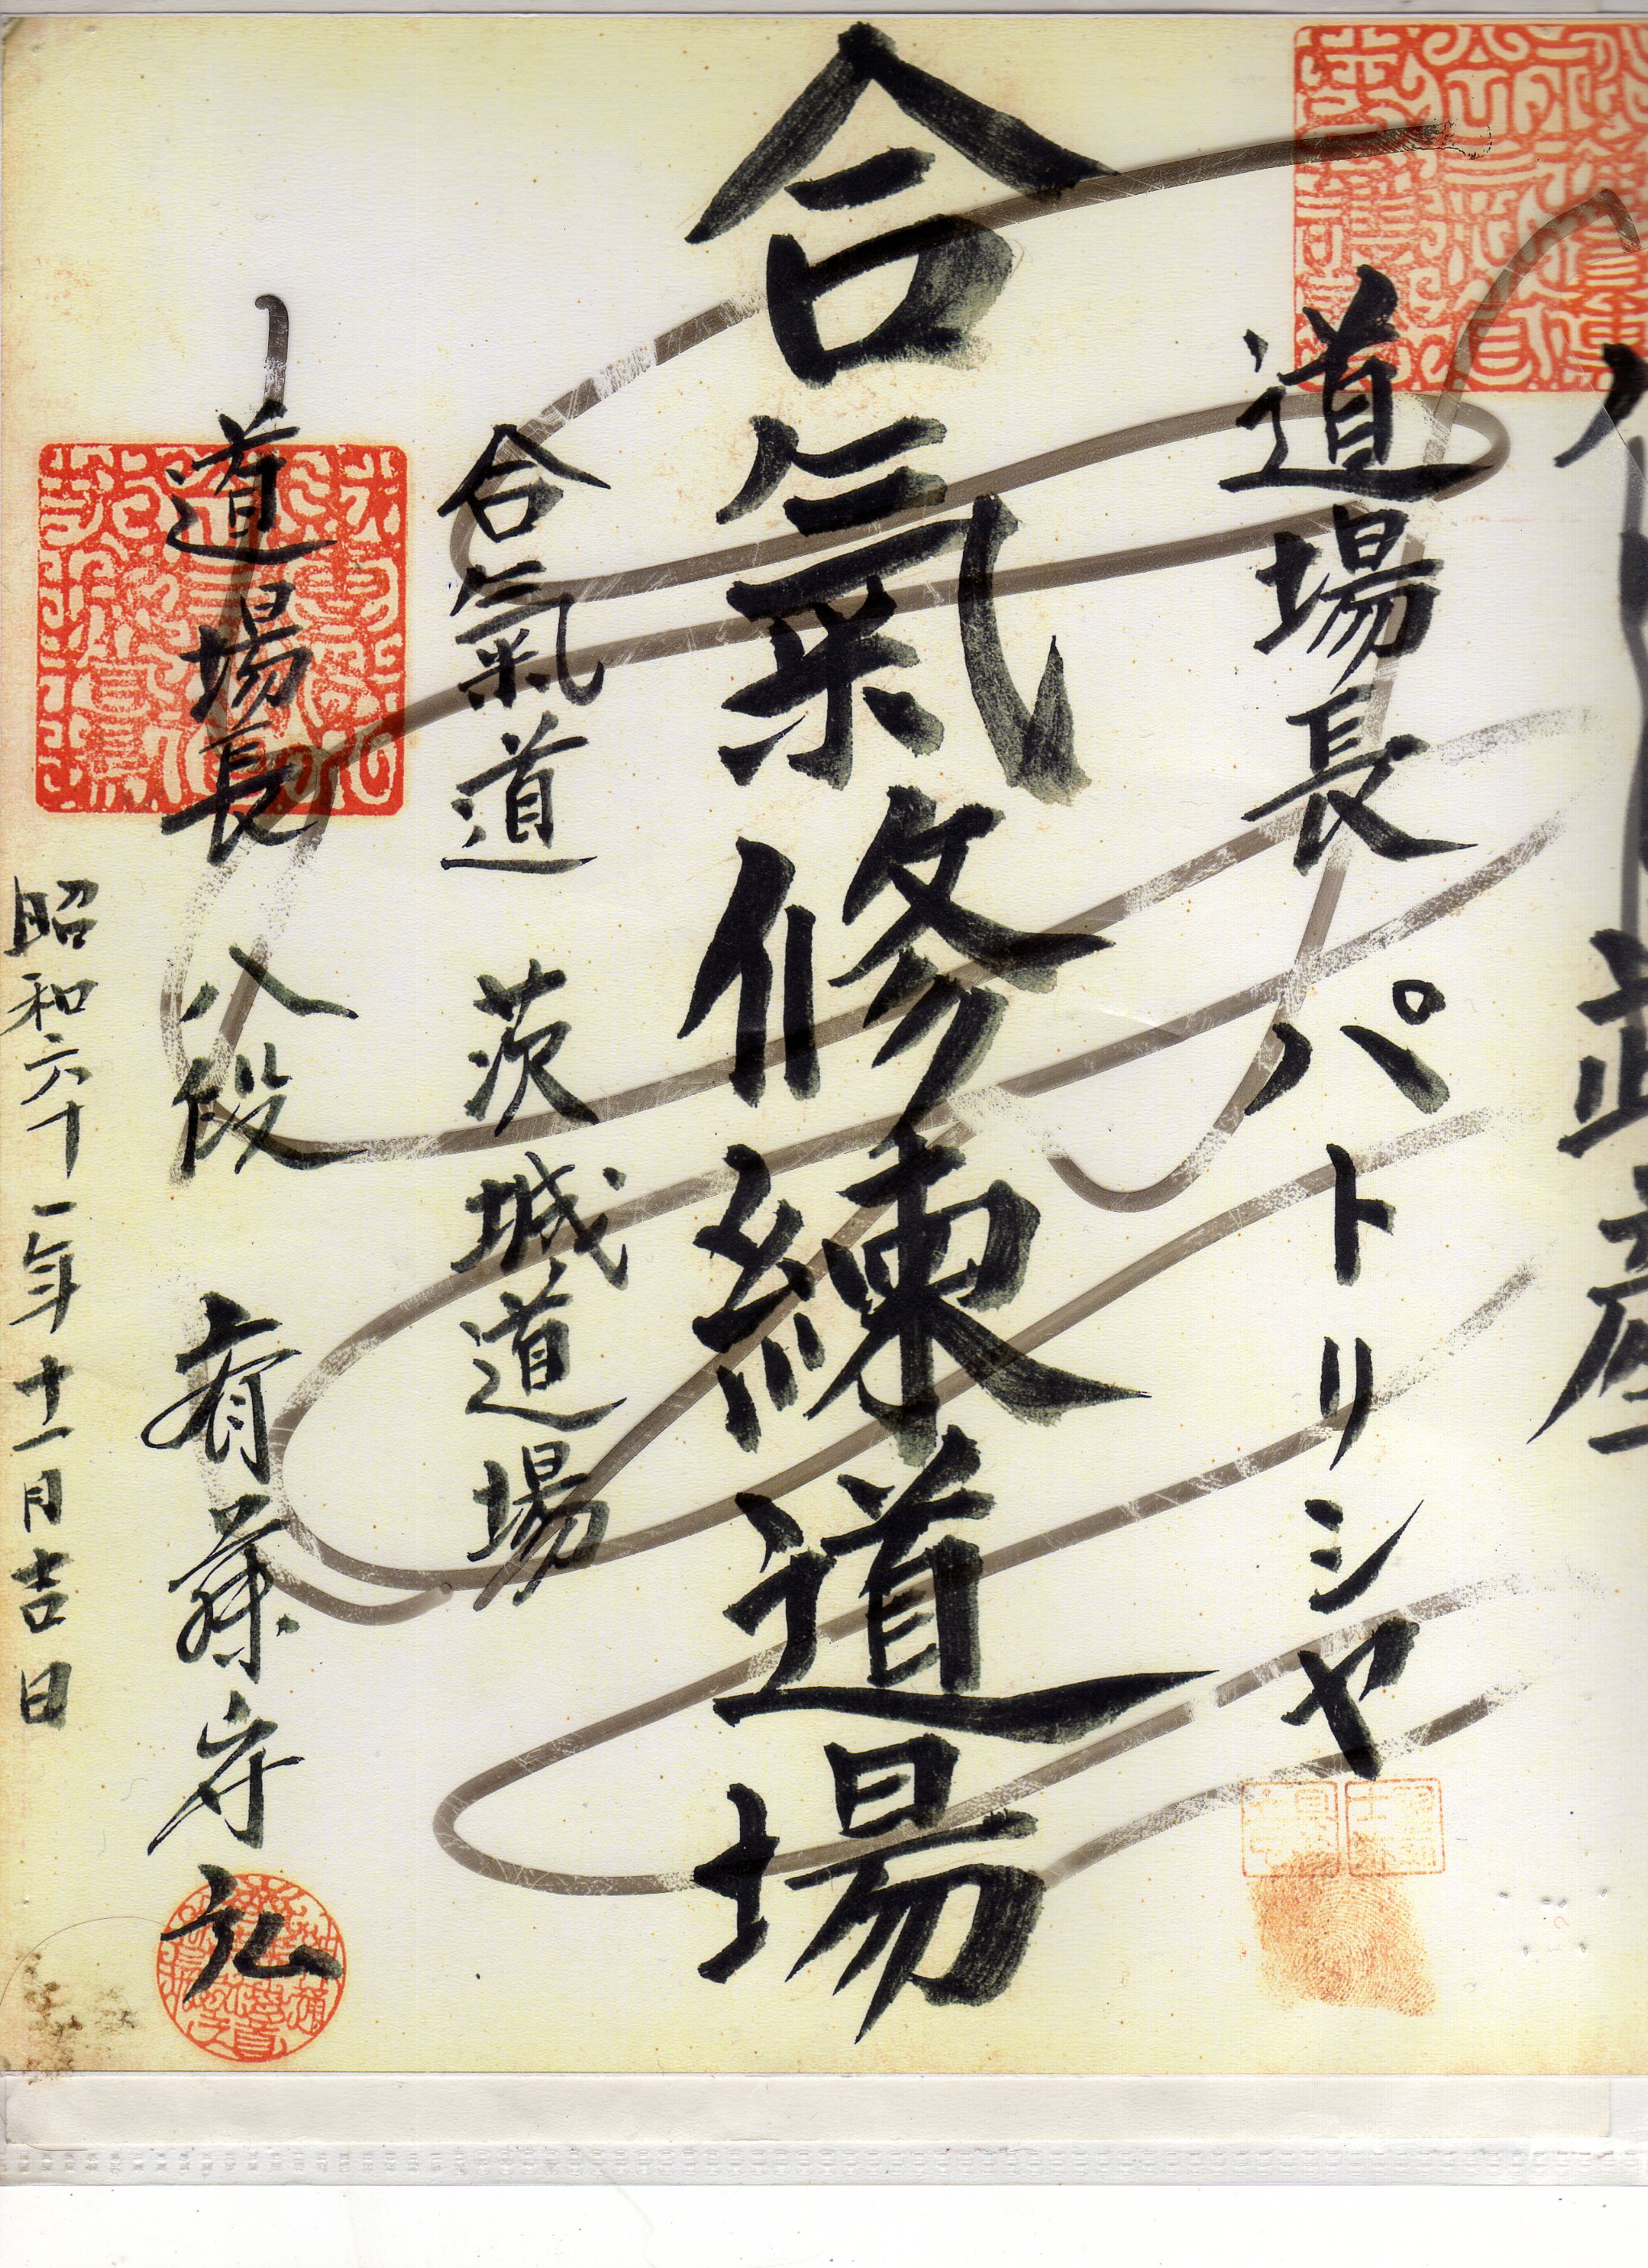 道場長 パトリシヤ
合氣修練道場
合氣道 茨城道場
道場長 八段 斉藤守弘
昭和六十一年十一月吉日